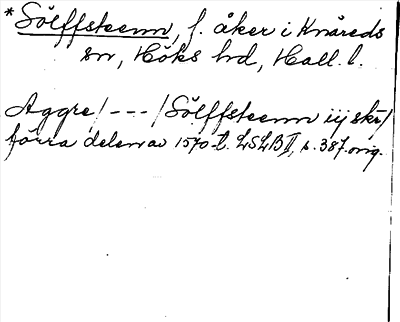 *Sölffsteenn, f. åker i Knäreds
sn, Höks hd, Hall. l.
Aggre / --- / Sölffsteenn iij skr /
förra delen av 1570-t. LSLB II, s. 387. orig.